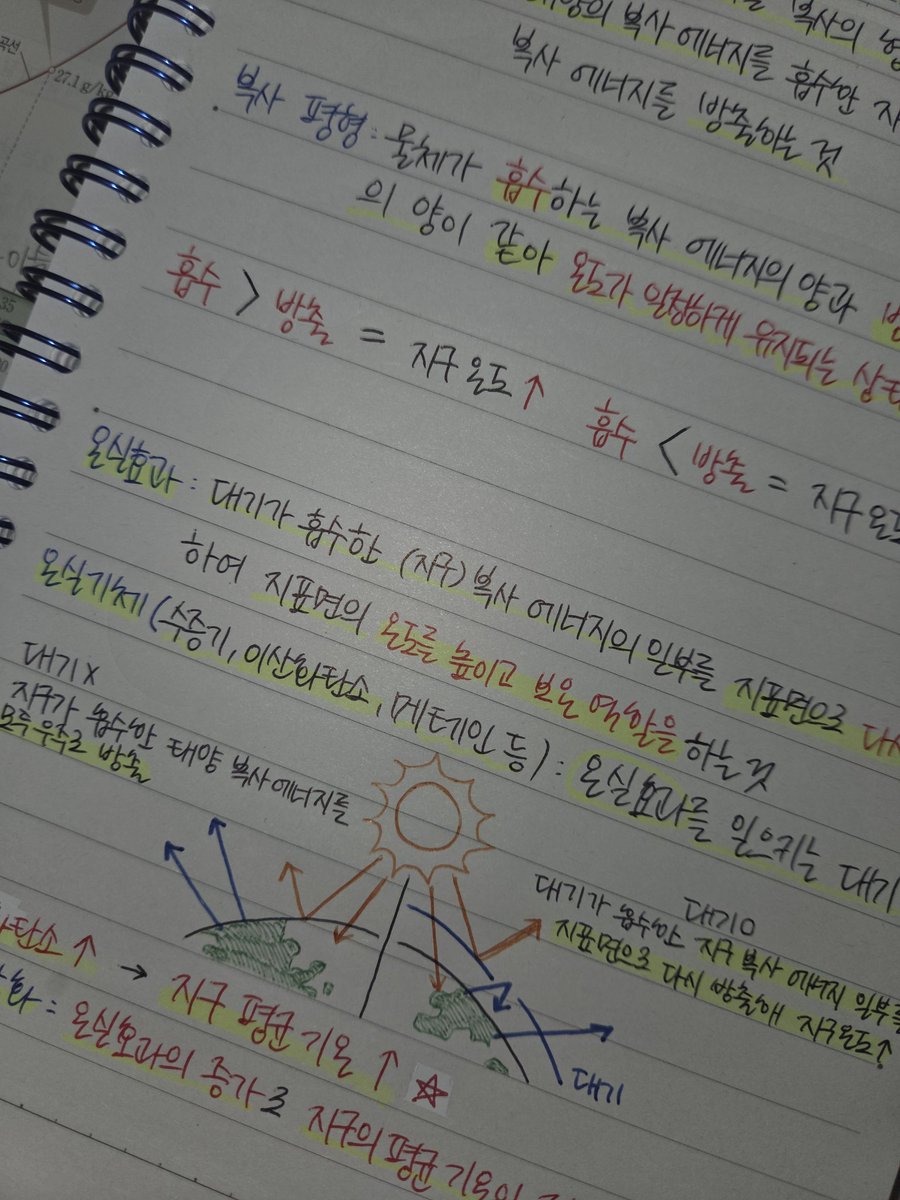 복사의
태양의 복사 에너지를 흡수한
복사 에너지를 방출하는 것
복사 평형 : 물체가 흡수하는 복사 에너지의 양과
의 양이 같아 온도가 일정하게 유지되는
흡수 > 방출 = 지구 온도 ↑ 흡수 < 방출 = 지구
온실효과 : 대기가 흡수한 (지구) 복사 에너지의 일부를 지표면으로
하여 지표면의 온도를 높이고 보온 역할을 하는 것
온실기체 (수증기, 이산화탄소, 메테인 등) : 온실효과를 일으키는 대기
대기 X
지구가 흡수한 태양 복사 에너지를
모두 우주로 방출
대기 O
대기가 흡수한 지구 복사 에너지 일부를
지표면으로 다시 방출해 지구온도 ↑
대기
↑ → 지구 평균 기온 ↑
: 온실효과의 증가로 지구의 평균 기온이
27.1 g/k
35